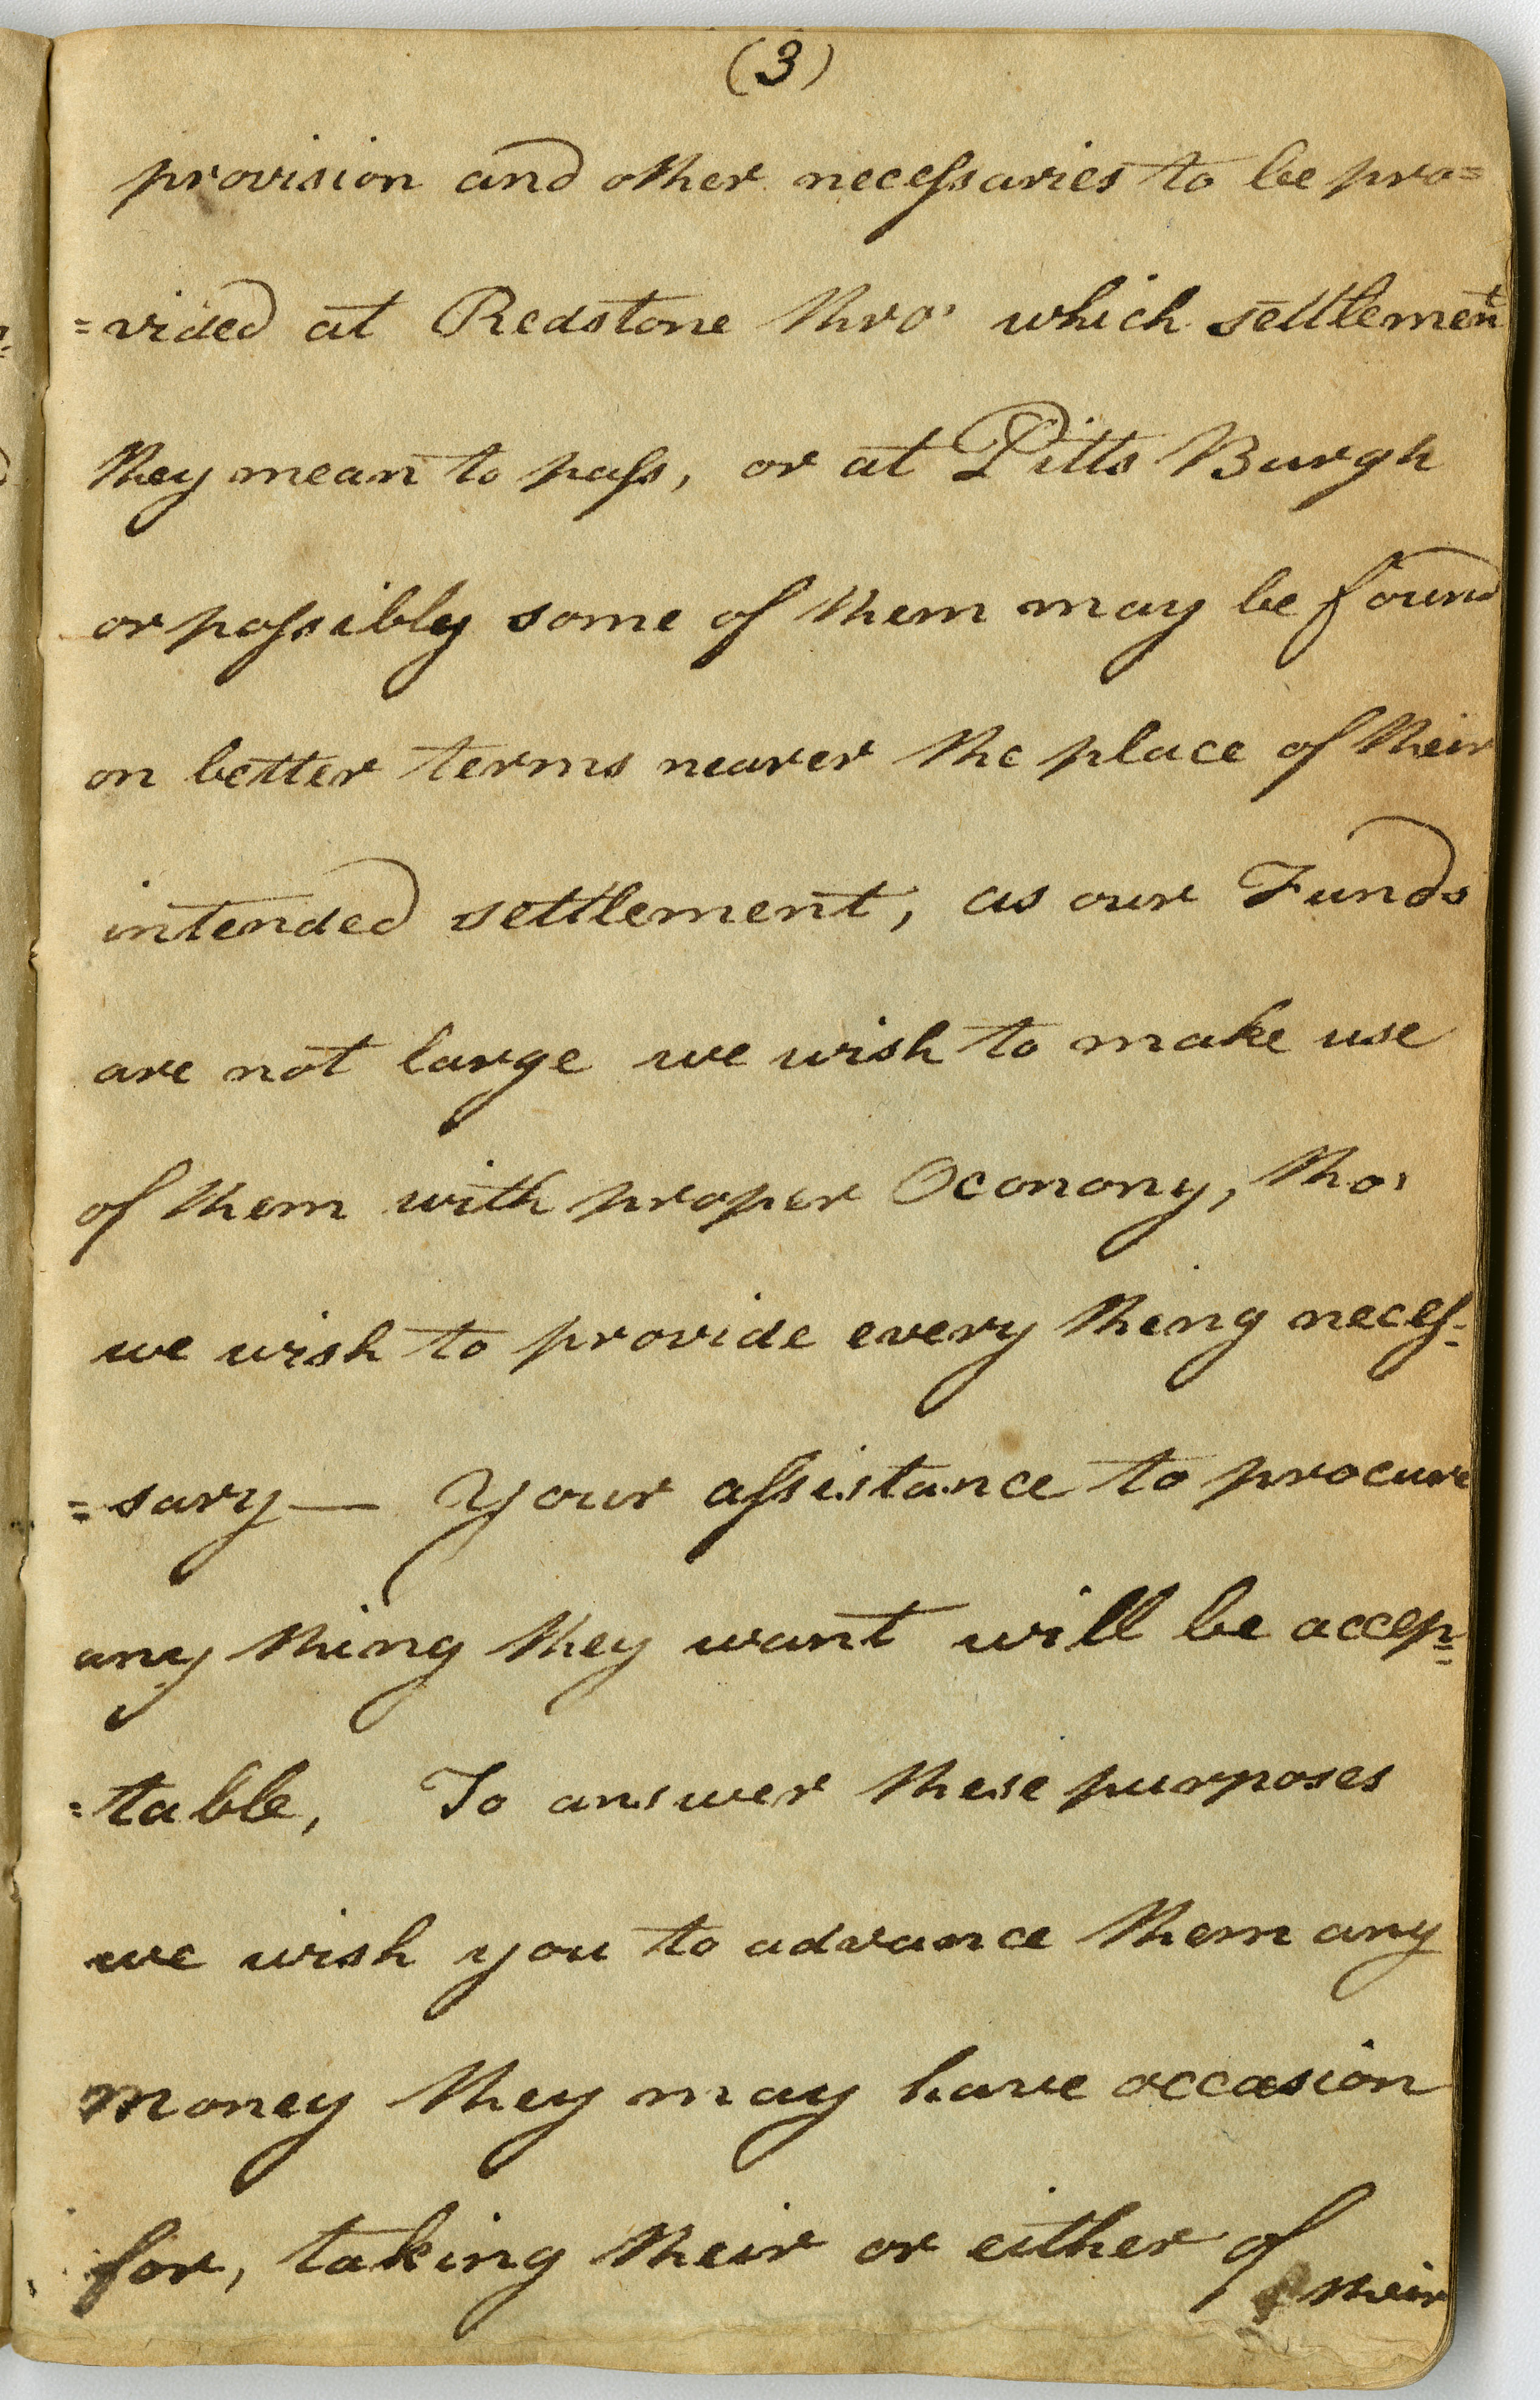 (3)
provision and other necessaries to be pro=
=vided at Redstone thro' which settlement
they mean to pass, or at Pitts Burgh
or possibly some of them may be found
on better terms nearer the place of their
intended settlement, as our Funds
are not large we wish to make use
of them with proper Oconony, tho'
we wish to provide every thing neces=
=sary — Your assistance to procure
any thing they want will be accep=
=table, To answer these purposes
we wish you to advance them any
money they may have occasion
for, taking their or either of
their